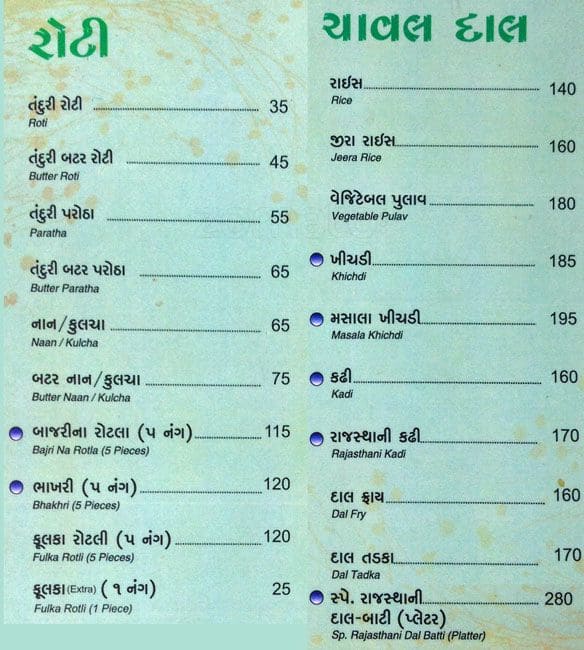 રોટી
તંદુરી રોટી 35
Roti
તંદુરી બટર રોટી 45
Butter Roti
તંદુરી પરોઠા 55
Paratha
તંદુરી બટર પરોઠા 65
Butter Paratha
નાન/કુલચા 65
Naan / Kulcha
બટર નાન/કુલચા 75
Butter Naan / Kulcha
બાજરીના રોટલા (૫ નંગ) 115
Bajri Na Rotla (5 Pieces)
ભાખરી (૫ નંગ) 120
Bhakhri (5 Pieces)
ફૂલકા રોટલી (૫ નંગ) 120
Fulka Rotli (5 Pieces)
ફૂલકા (Extra) (૧ નંગ) 25
Fulka Rotli (1 Piece)
ચાવલ દાલ
રાઈસ 140
Rice
જીરા રાઈસ 160
Jeera Rice
વેજિટેબલ પુલાવ 180
Vegetable Pulav
ખીચડી 185
Khichdi
મસાલા ખીચડી 195
Masala Khichdi
કઢી 160
Kadi
રાજસ્થાની કઢી 170
Rajasthani Kadi
દાલ ફ્રાય 160
Dal Fry
દાલ તડકા 170
Dal Tadka
સ્પે. રાજસ્થાની 280
દાલ-બાટી (પ્લેટર)
Sp. Rajasthani Dal Batti (Platter)